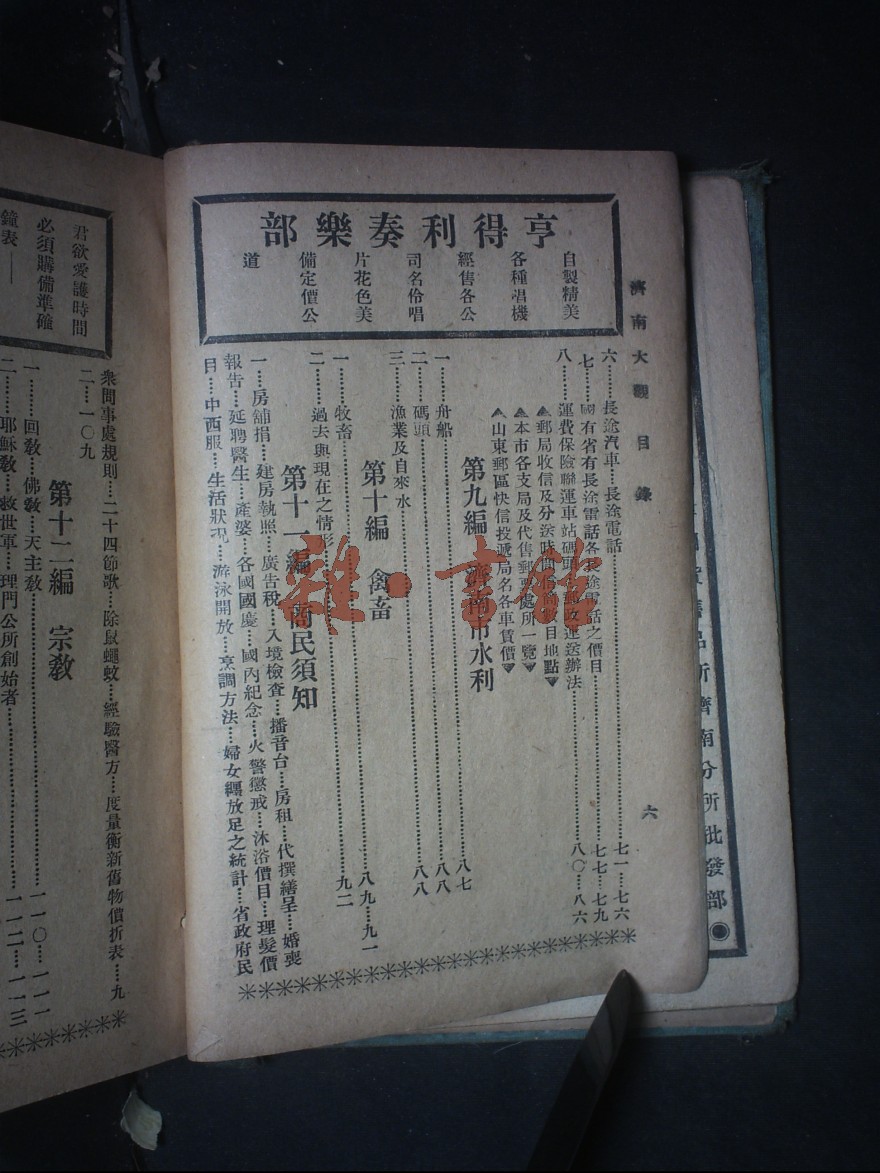 濟南大觀目錄
六
亨得利奏樂部
自製精美
各種唱機
經售各公
司名伶唱
片花色美
備定價公
道
六……長途汽車…長途電話……七一…七六
七……國有省有長途電話各長途電話之價目……七七…七九
八……運費保險聯運車站碼頭郵政運送辦法……八〇…八六
郵局收信及分送時間信筒數目地點
本市各支局及代售郵票處所一覽
山東郵區快信投遞局名各車賃價
第九編 濟南市水利
一……舟船……八七
二……碼頭……八八
三……漁業及自來水……八八
第十編 禽畜
一……牧畜……八九…九一
二……過去與現在之情形……九二
第十一編 商民須知
一…房舖捐…建房執照…廣告稅…入境檢查…播音台…房租…代撰繕呈…婚喪
報告…延聘醫生…產婆…各國國慶…國內紀念…火警懲戒…沐浴價目…理髮價
目…中西服…生活狀況…游泳開放…烹調方法…婦女纏放足之統計…省政府民
君欲愛護時間
必須購備準確
鐘表——
眾問事處規則…二十四節歌…除鼠蠅蚊…經驗醫方…度量衡新舊物價折表…九
二…一〇九
第十二編 宗教
一……回教…佛教…天主教……一一〇…一一一
二……耶穌教…救世軍…理門公所創始者……一一二…一一三
濟南分所批發部